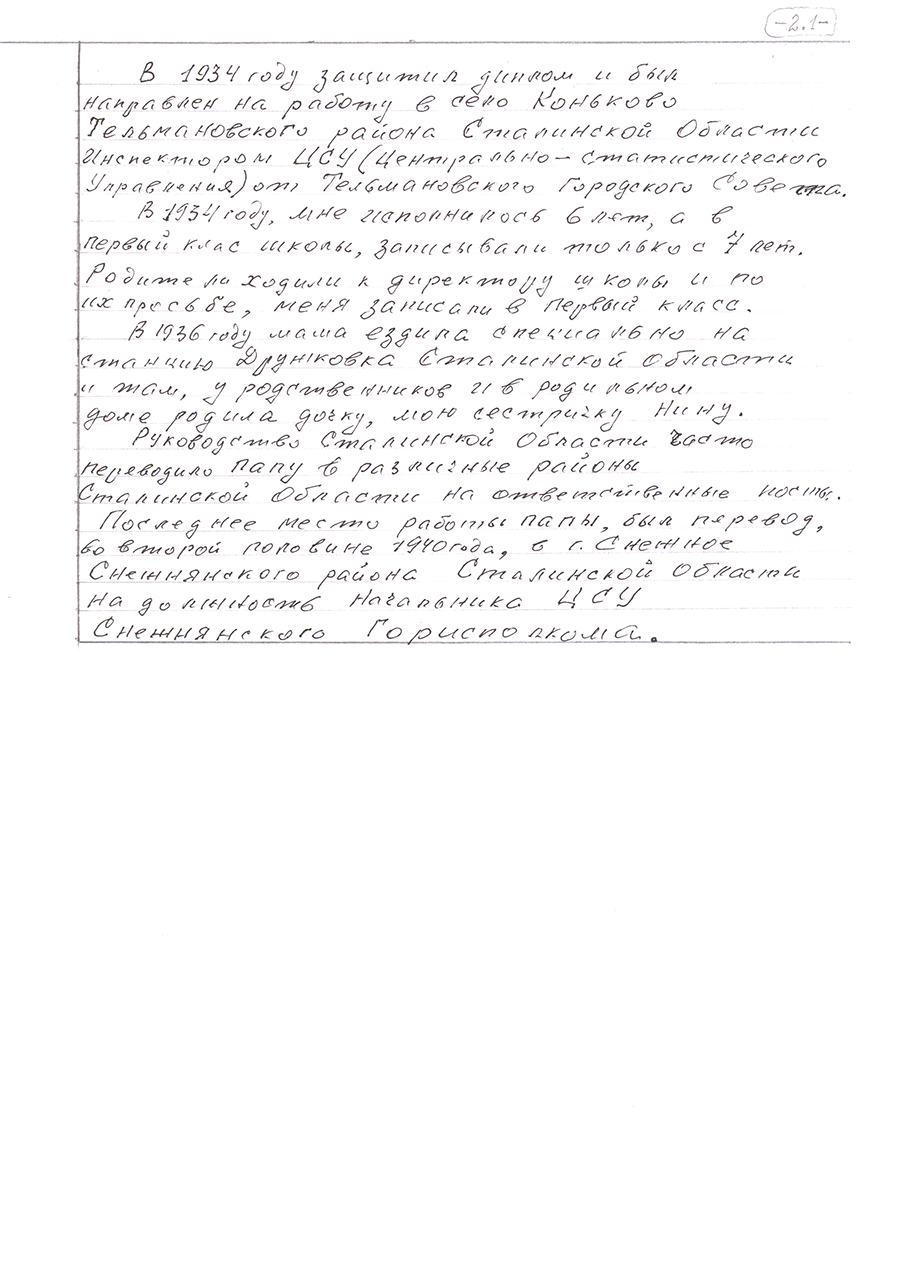 -2.1-
В 1934 году защитил диплом и был
направлен на работу в село Коньково
Тельмановского района Сталинской Области
Инспектором ЦСУ (Центрально-статистического
Управления) от Тельмановского Городского Совета.
В 1934 году, мне исполнилось 6 лет, а в
первый клас школы, записывали только с 7 лет.
Родители ходили к директору школы и по
их просьбе, меня записали в первый класс.
В 1936 году мама ездила специально на
станцию Дружковка Сталинской области
и там, у родственников и в родильном
доме родила дочку, мою сестричку Нину.
Руководство Сталинской Области часто
переводило папу в различные районы
Сталинской Области на ответственные посты.
Последнее место работы папы, был перевод,
во второй половине 1940 года, в г. Снежное
Снежнянского района Сталинской области
на должность Начальника ЦСУ
Снежнянского Горисполкома.